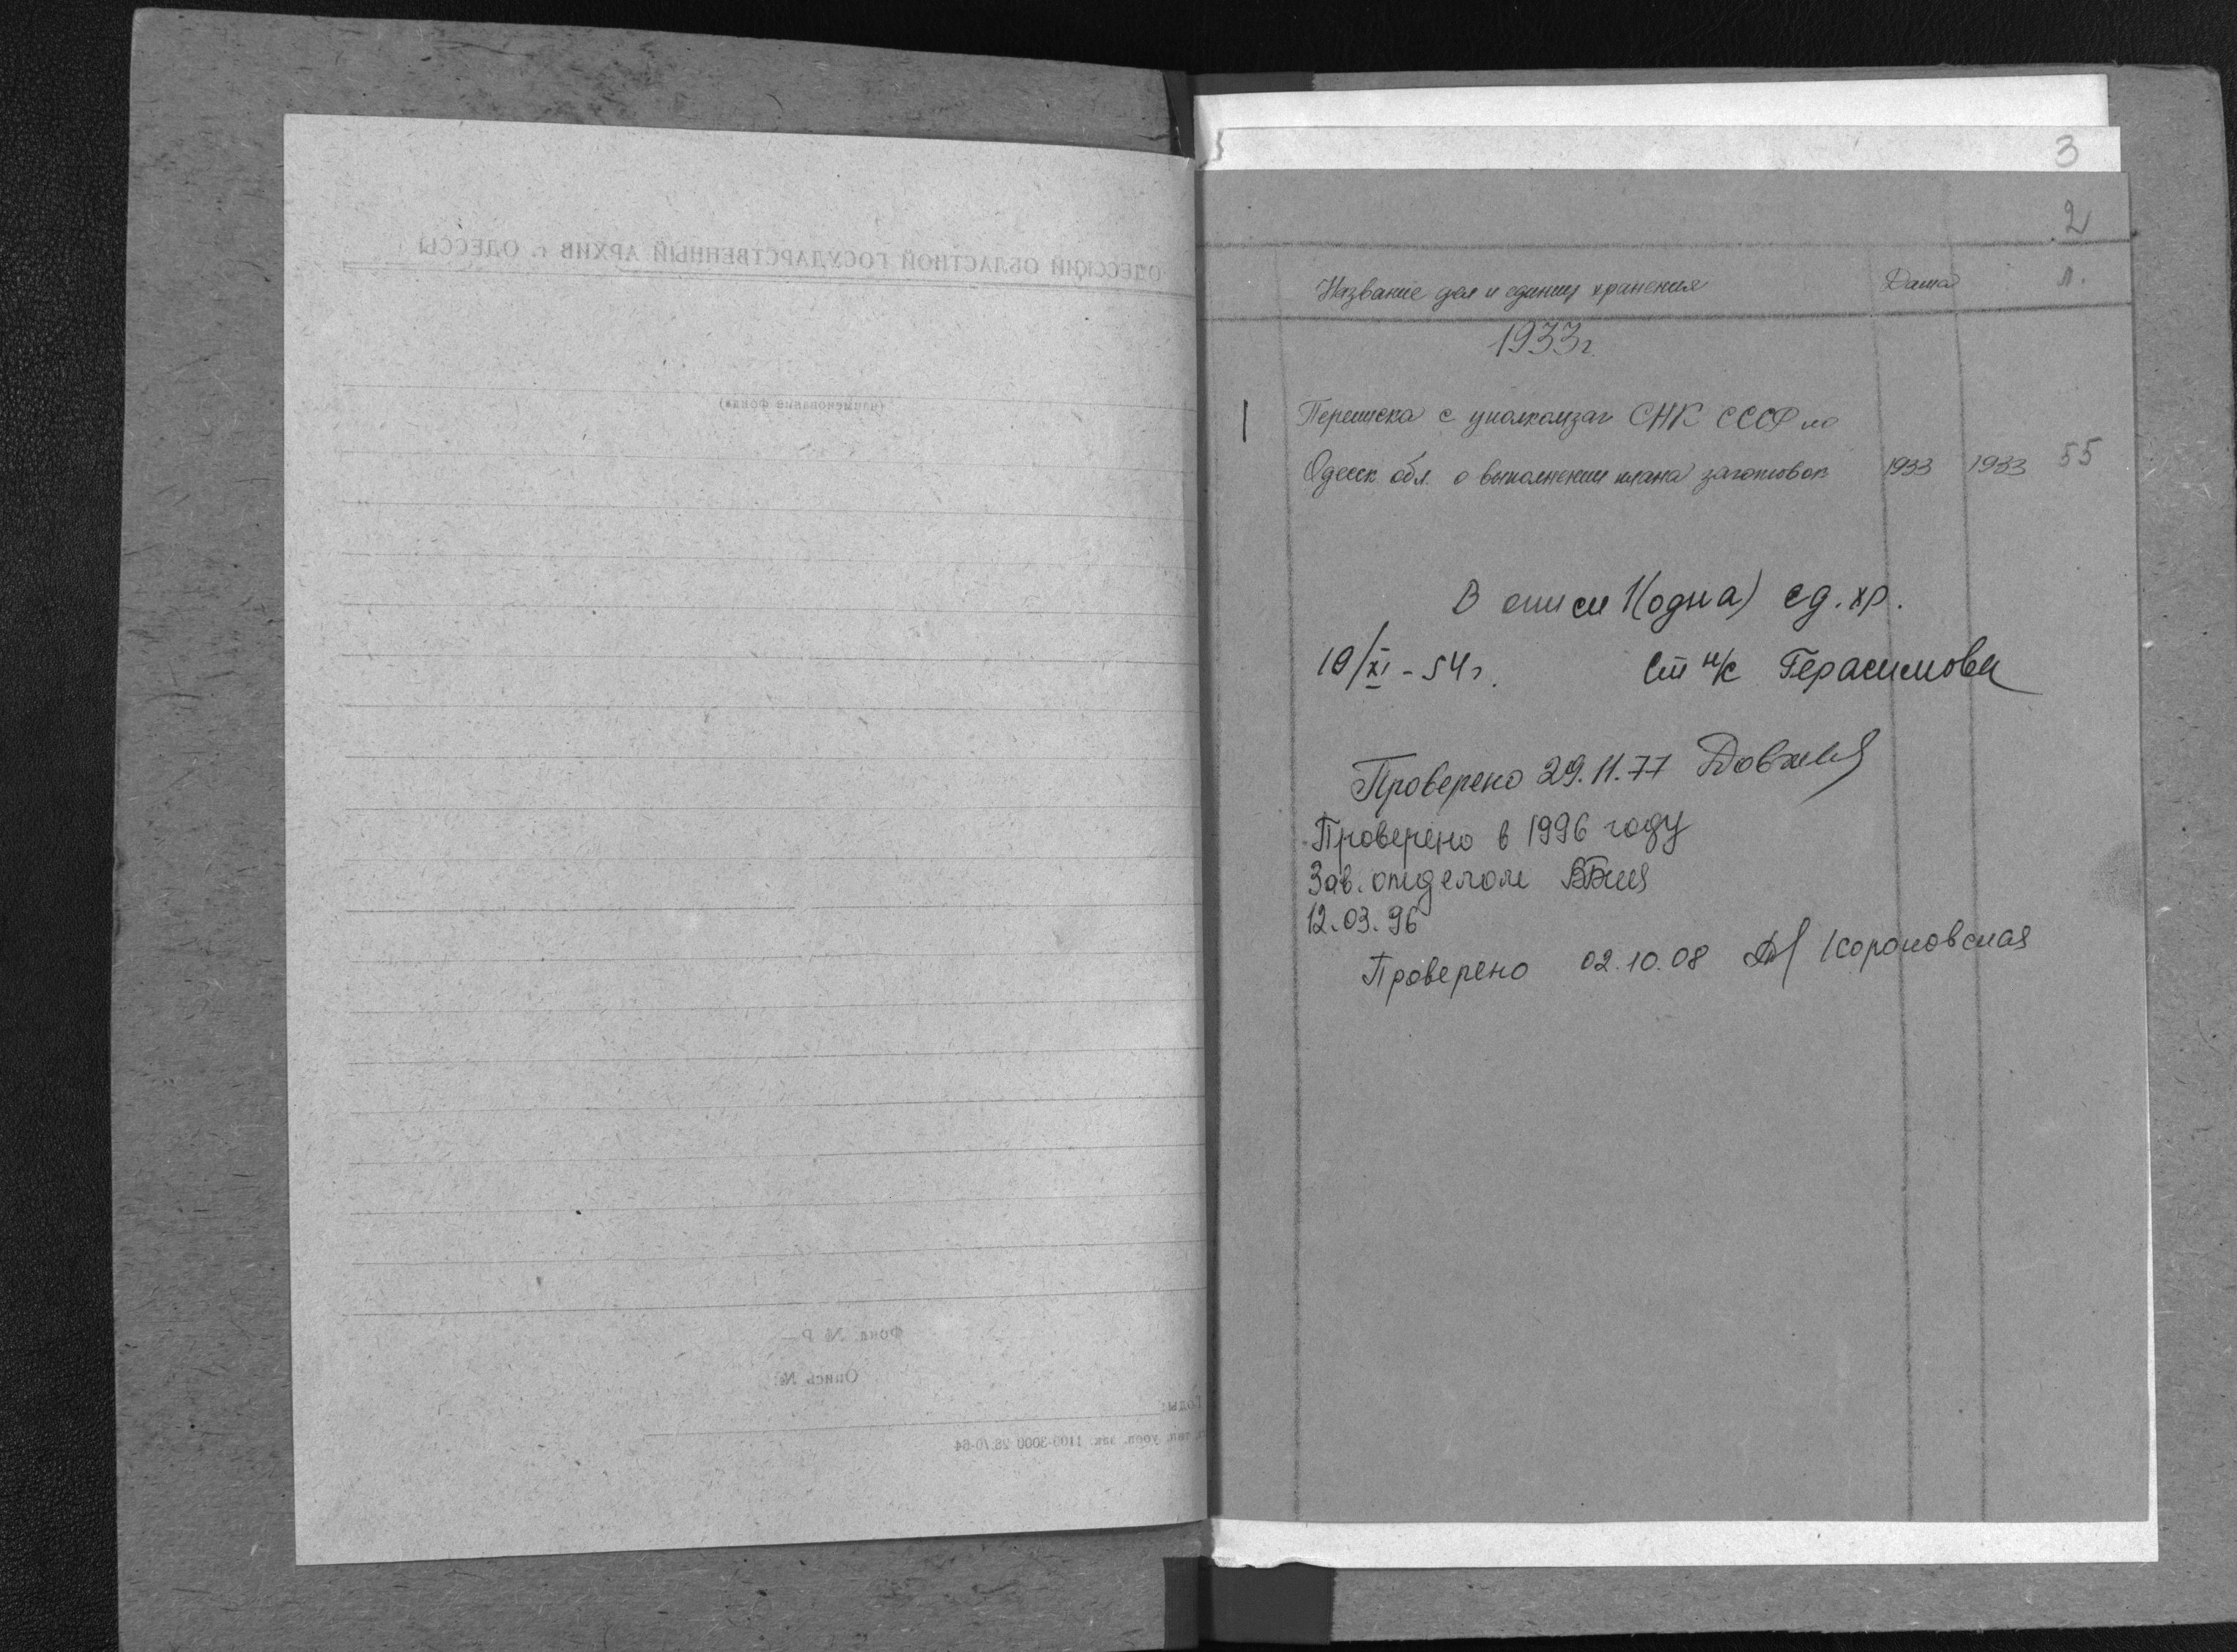 ОДЕССКИЙ ОБЛАСТНОЙ ГОСУДАРСТВЕННЫЙ АРХИВ г. ОДЕССЫ
(наименование фонда)
Фонд № Р—
Опись №
Годы:
зак. 1100-3000
3
2
Название дел и единиц хранения Дата л.
1933 г.
1 Переписка с уполкомзаг СНК СССР по
Одесск обл. о выполнении плана заготовок 1933 1933 55
В описи 1 (одна) ед. хр.
19/XI - 54 г. Ст н/с Герасимова
Проверено 29.11.77
Проверено в 1996 году
Зав. отделом
12.03.96
Проверено 02.10.08